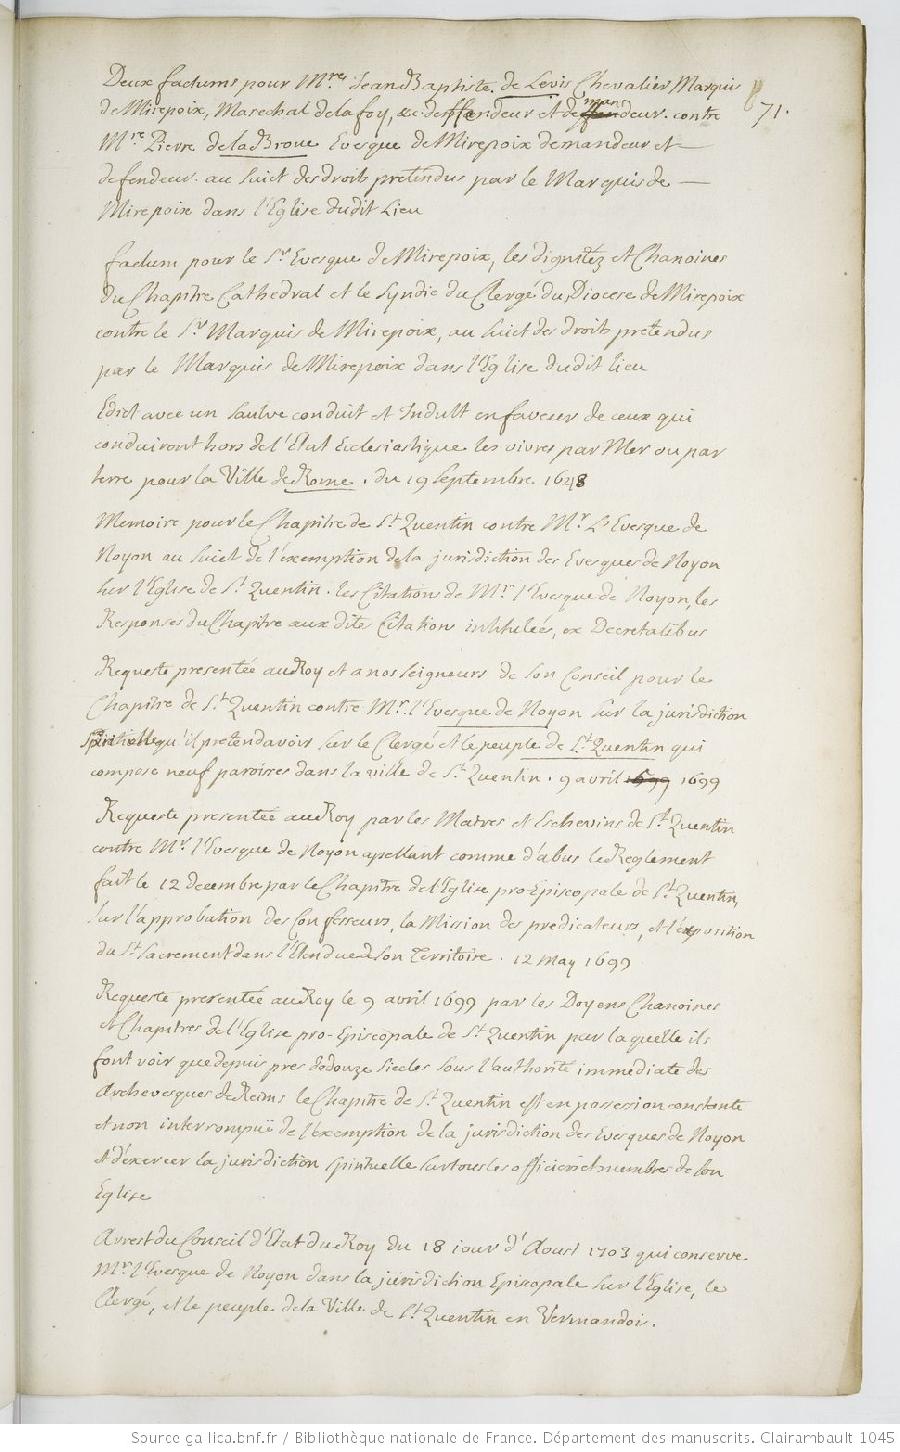 Deux factums pour Mre. Jean Baptiste de Levis Chevalier, Marquis
de Mirepoix, Mareschal de la foy, &c deffendeur et demandeur. contre
71.
Mre. Pierre de la Broue Evesque de Mirepoix demandeur et
defendeur. au suiet des droits pretendus par le Marquis de
Mirepoix dans l'Eglise dudit Lieu
factum pour le Sr. Evesque de Mirepoix, les dignitéz et Chanoines
du Chapitre Cathedral et le Syndic du Clergé du Diocese de Mirepoix
contre le Sr Marquis de Mirepoix, au suiet des droits pretendus
par le Marquis de Mirepoix dans l'Eglise dudit lieu
Edict avec un saulve conduit et Indult en faveur de ceux qui
conduiront hors de l'Etat Eclesiastique les vivres par Mer ou par
terre pour la Ville de Rome. du 19 Septembre 1648
Memoire pour le Chapitre de St. Quentin contre Mr. L'Evesque de
Noyon au suiet de l'exemption de la jurisdiction des Evesques de Noyon
sur l'Eglise de St. Quentin. les Citations de Mr. l'Evesque de Noyon, les
Responses du Chapitre aux dites Citations intitulées, ex Decretalibus
Requeste presentée au Roy et a nosseigneurs de son Conseil pour le
Chapitre de St. Quentin contre Mr. l'Evesque de Noyon sur la jurisdiction
spirituelle qu'il pretend avoir sur le Clergé et le peuple de St. Quentin qui
compose neuf paroisses dans la ville de St. Quentin. 9 avril 1699 1699
Requeste presentée au Roy par les Maires et Eschevins de St. Quentin
contre Mr. l'Evesque de Noyon apellant comme d'abus le Reglement
fait le 12 decembre par le Chapitre de l'Eglise pro-Episcopale de St. Quentin,
sur l'approbation des Confesseurs, la Mission des predicateurs, et l'exposition
du St. Sacrement dans l'Etendue de son Territoire. 12 may 1699
Requeste presentée au Roy le 9 avril 1699 par les Doyens Chanoines
et Chapitres de l'Eglise pro-Episcopale de St. Quentin par laquelle ils
font voir que depuis pres de douze siecles sous l'authorité immediate des
Archevesques de Reims le Chapitre de St. Quentin est en possession constante
et non interrompuë de l'exemption de la jurisdiction des Evesques de Noyon
et d'exercer la jurisdiction spirituelle sur tous les officiers et membres de son
Eglise
Arrest du Conseil d'Etat du Roy du 18 iour d'Aoust 1703 qui conserve
Mr. l'Evesque de Noyon dans la jurisdiction Episcopale sur l'Eglise, le
Clergé, et le peuple de la Ville de St. Quentin en Vermandois.
Source gallica.bnf.fr / Bibliothèque nationale de France. Département des manuscrits. Clairambault 1045